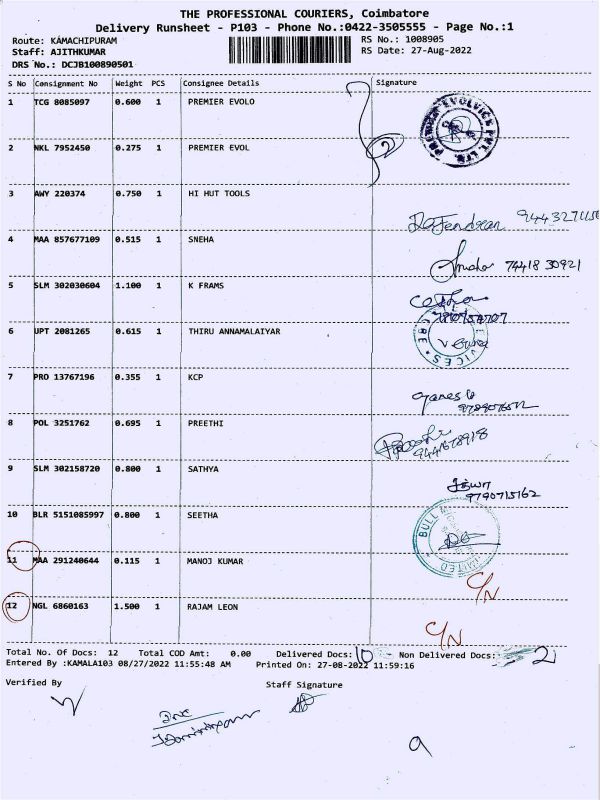 THE PROFESSIONAL COURIERS, Coimbatore
Delivery Runsheet - P103 - Phone No.:0422-3505555 - Page No.:1
Route: KAMACHIPURAM RS No.: 1008905
Staff: AJITHKUMAR RS Date: 27-Aug-2022
DRS No.: DCJB100890501
S No Consignment No Weight PCS Consignee Details Signature
1 TCG 8085097 0.600 1 PREMIER EVOLO
PREMIER EVOLVICS PVT. LTD.
2 NKL 7952450 0.275 1 PREMIER EVOL
2
3 AWY 220374 0.750 1 HI HUT TOOLS
4 MAA 857677109 0.515 1 SNEHA
74418 30921
5 SLM 302030604 1.100 1 K FRAMS
6 UPT 2081265 0.615 1 THIRU ANNAMALAIYAR
7 PRO 13767196 0.355 1 KCP
8 POL 3251762 0.695 1 PREETHI
9 SLM 302158720 0.800 1 SATHYA
சத்யா
9790715162
10 BLR 5151085997 0.800 1 SEETHA
BULL
11 MAA 291240644 0.115 1 MANOJ KUMAR
C/N
12 NGL 6860163 1.500 1 RAJAM LEON
C/N
Total No. Of Docs: 12 Total COD Amt: 0.00 Delivered Docs: 10 Non Delivered Docs: 2
Entered By :KAMALA103 08/27/2022 11:55:48 AM Printed On: 27-08-2022 11:59:16
Verified By Staff Signature